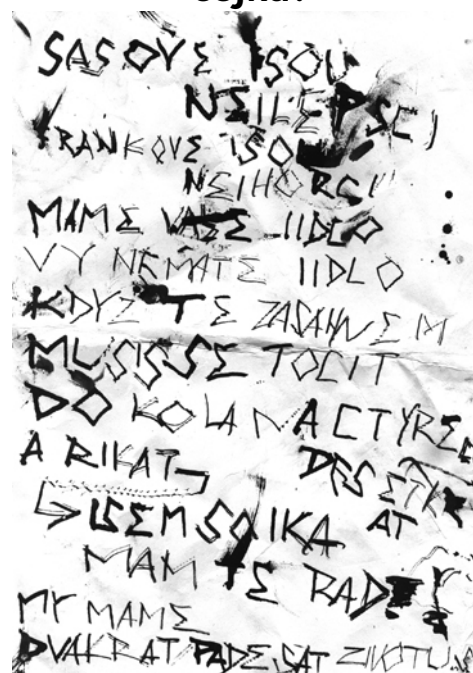 SASOVE ISOU
NEILEPSCI
FRANKOVE ISOU
NEIHORCI
MAME VASE IIDLO
VY NEMATE IIDLO
KDYZ TE ZASAHNEM
MUSIS SE TOCIT
DO KOLA NA CTYREC
A RIKAT DESETK
ISEM SOIKA AT
MAM TE RAD
MY MAME
DVAKRAT PADESAT ZIVOTU